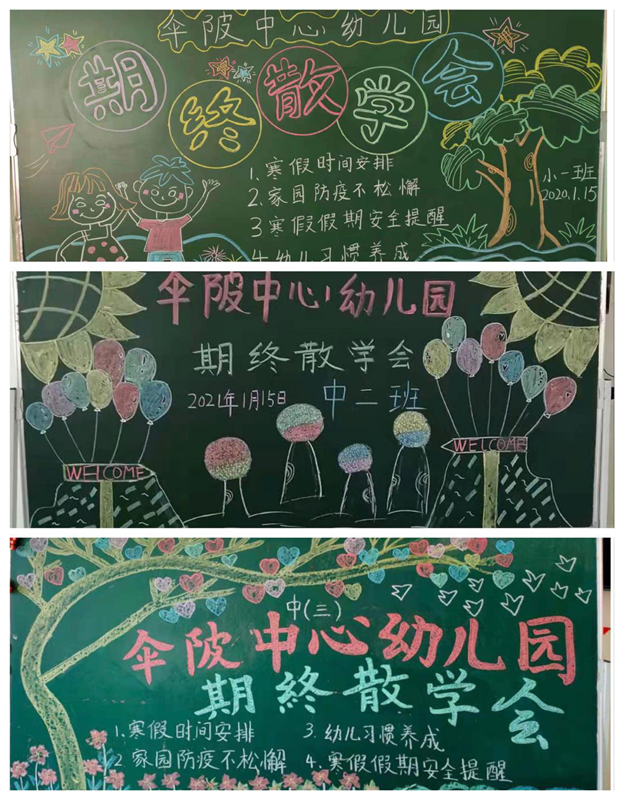 伞陂中心幼儿园
期终散学会
1、寒假时间安排
2、家园防疫不松懈
3 寒假假期安全提醒
4 幼儿习惯养成
小一班
2020.1.15
伞陂中心幼儿园
期终散学会
2021年1月15日 中二班
WELCOME
WELCOME
中(三)
伞陂中心幼儿园
期終散学会
1.寒假时间安排
3.幼儿习惯养成
2 家园防疫不松懈
4.寒假假期安全提醒